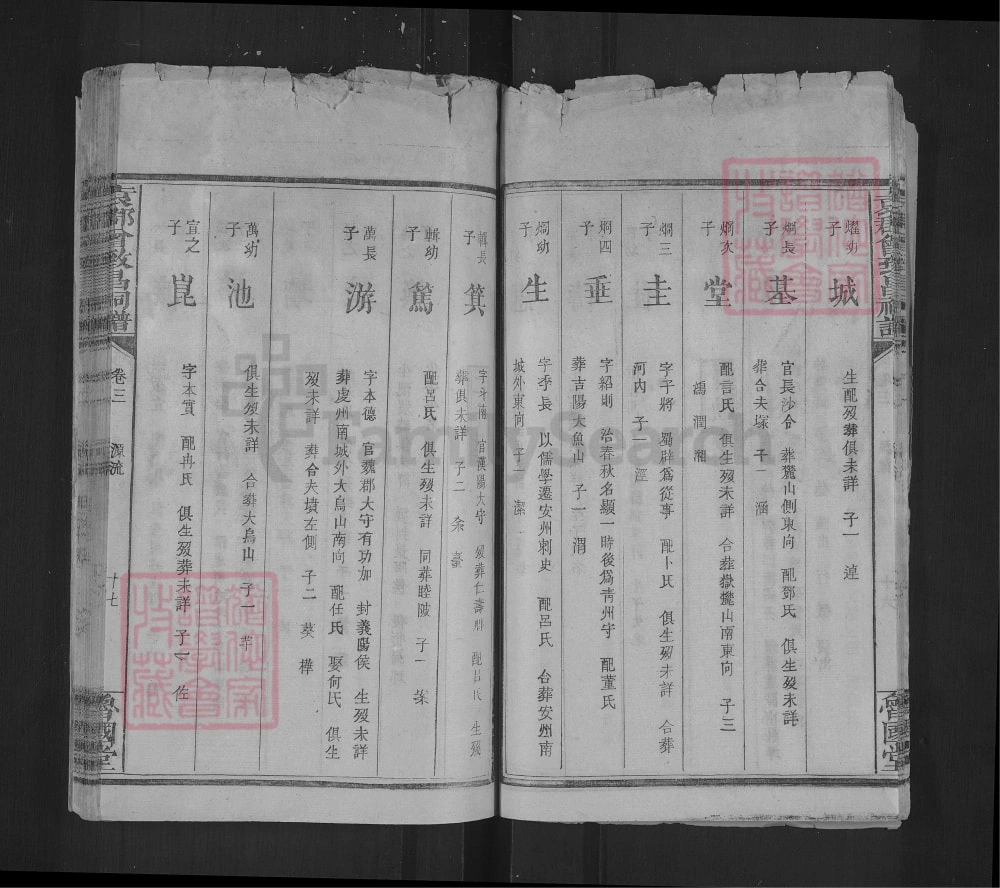 燿幼子 城 生配歿葬俱未詳 子一 連
炯長子 基 官長沙令 葬麓山側東向 配鄧氏 俱生歿未詳
葬合夫塚 子一 涵
炯次子 堂 配言氏 俱生歿未詳 合葬嶽麓山南東向 子三
潤
炯三子 圭 字子將 蜀辟爲從事 配卜氏 俱生歿未詳 合葬
河內 子一 涇
炯四子 垂 字紹則 治春秋名顯一時後爲青州守 配董氏
葬吉陽大魚山 子一 渭
炯幼子 生 字季長 以儒學遷安州刺史 配呂氏 合葬安州南
城外東向 子一 潔
輯長子 箕 字斗南 官漢陽太守 歿葬仁壽 配吕氏 生歿
葬俱未詳 子二
輯幼子 篤 配呂氏 俱生歿未詳 同葬睦陂 子一
萬長子 游 字本德 官魏郡大守有功加 封義陽侯 生歿未詳
葬處州南城外大烏山南向 配任氏 娶何氏 俱生
歿未詳 葬合夫墳左側 子二 葵 樺
萬幼子 池 俱生歿未詳 合葬大烏山 子一
宜之子 崑 字本實 配冉氏 俱生歿葬未詳 子一 佐
卷三 源流 十七
魯國堂
魯國堂
FamilySearch